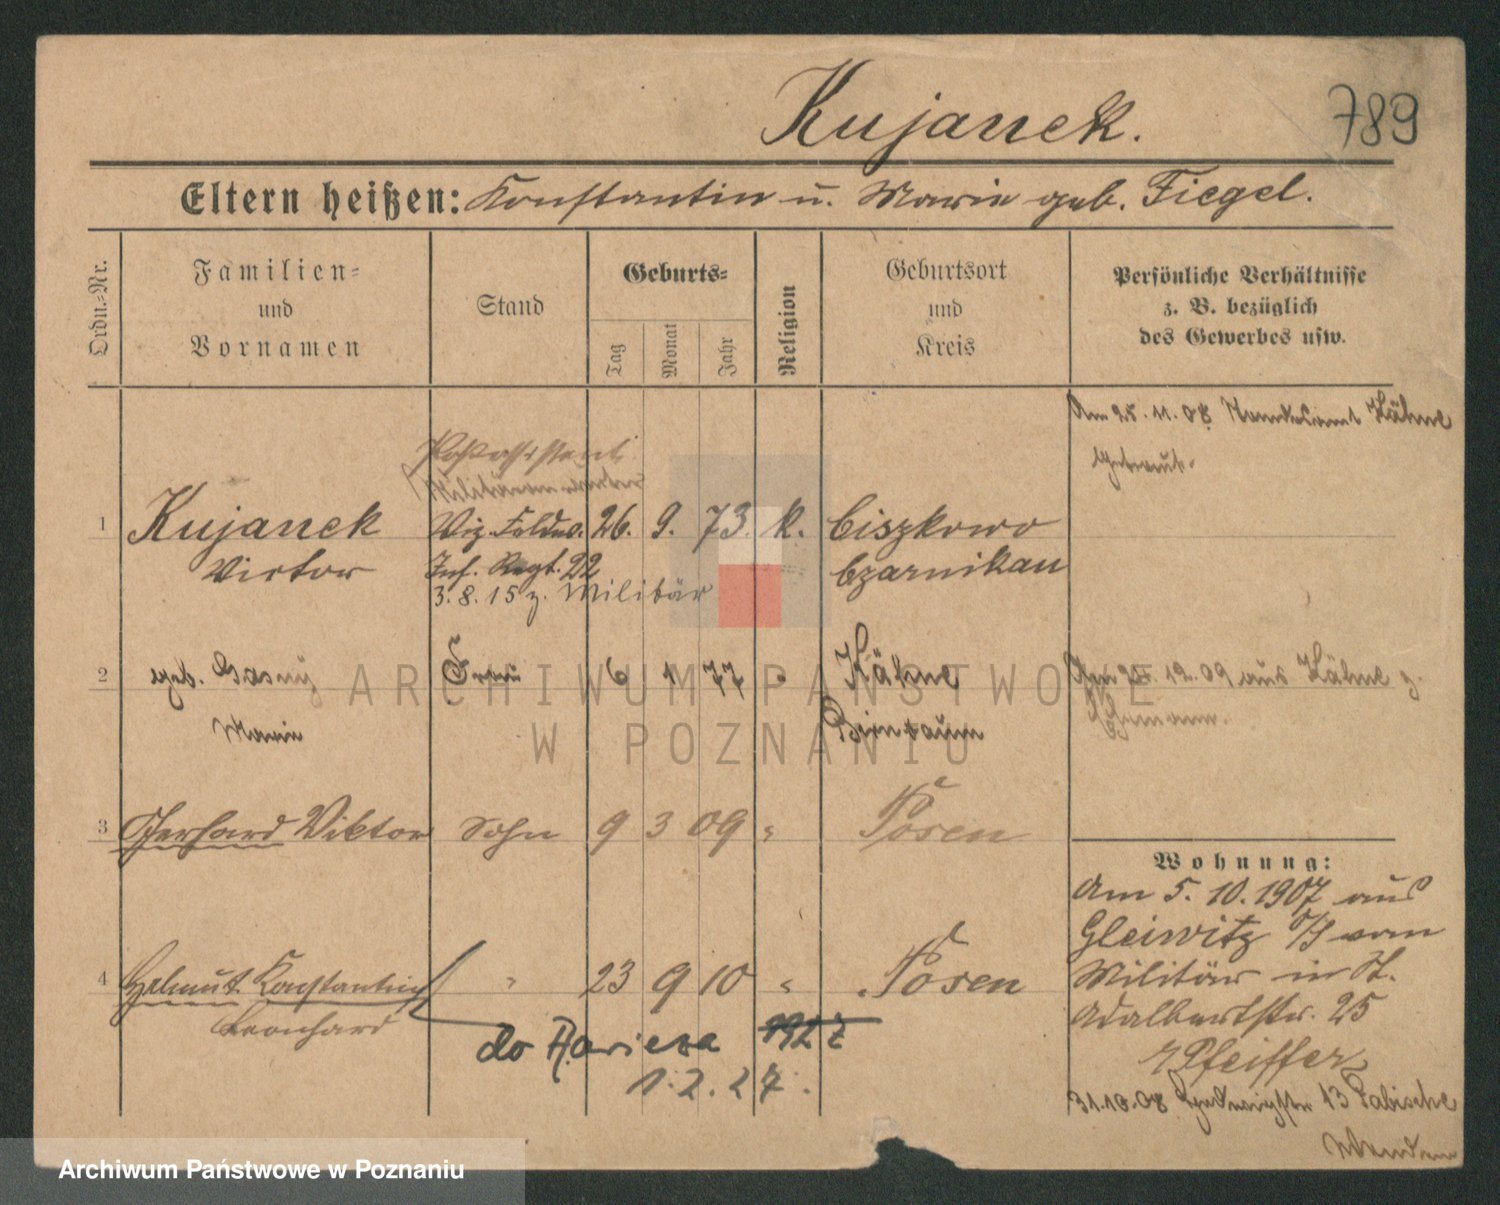 Kujanek.
789
Eltern heißen: Konstantin u. Marie geb. Fiegel.
Ordn.-Nr.
Familien-
und
Vornamen
Stand
Geburts-
Tag
Monat
Jahr
Religion
Geburtsort
und
Kreis
Persönliche Verhältnisse
z. B. bezüglich
des Gewerbes usw.
Am 25. 11. 08 Standesamt Kähne
getraut.
Postassistent
Militäranwärter
1 Kujanek Viz. Feldw. 26. 9. 73. k. Ciszkowo
Victor Inf. Regt. 22 Czarnikau
3. 8. 15 z. Militär
2 geb. Gasny Frau 6 1 77 " Kähne
Marie Birnbaum
Am 12. 09 aus Kähne z.
Ehemann.
3 Gerhard Viktor Sohn 9 3 09 " Posen
4 Helmut Konstantin " 23 9 10 " Posen
Leonhard
do 1927
1. 2. 27.
Wohnung:
Am 5. 10. 1907 aus
Gleiwitz O/S vom
Militär in St.
Adalbertstr. 25
Pfeiffer
31.10.08 13
ARCHIWUM PAŃSTWOWE
W POZNANIU
Archiwum Państwowe w Poznaniu